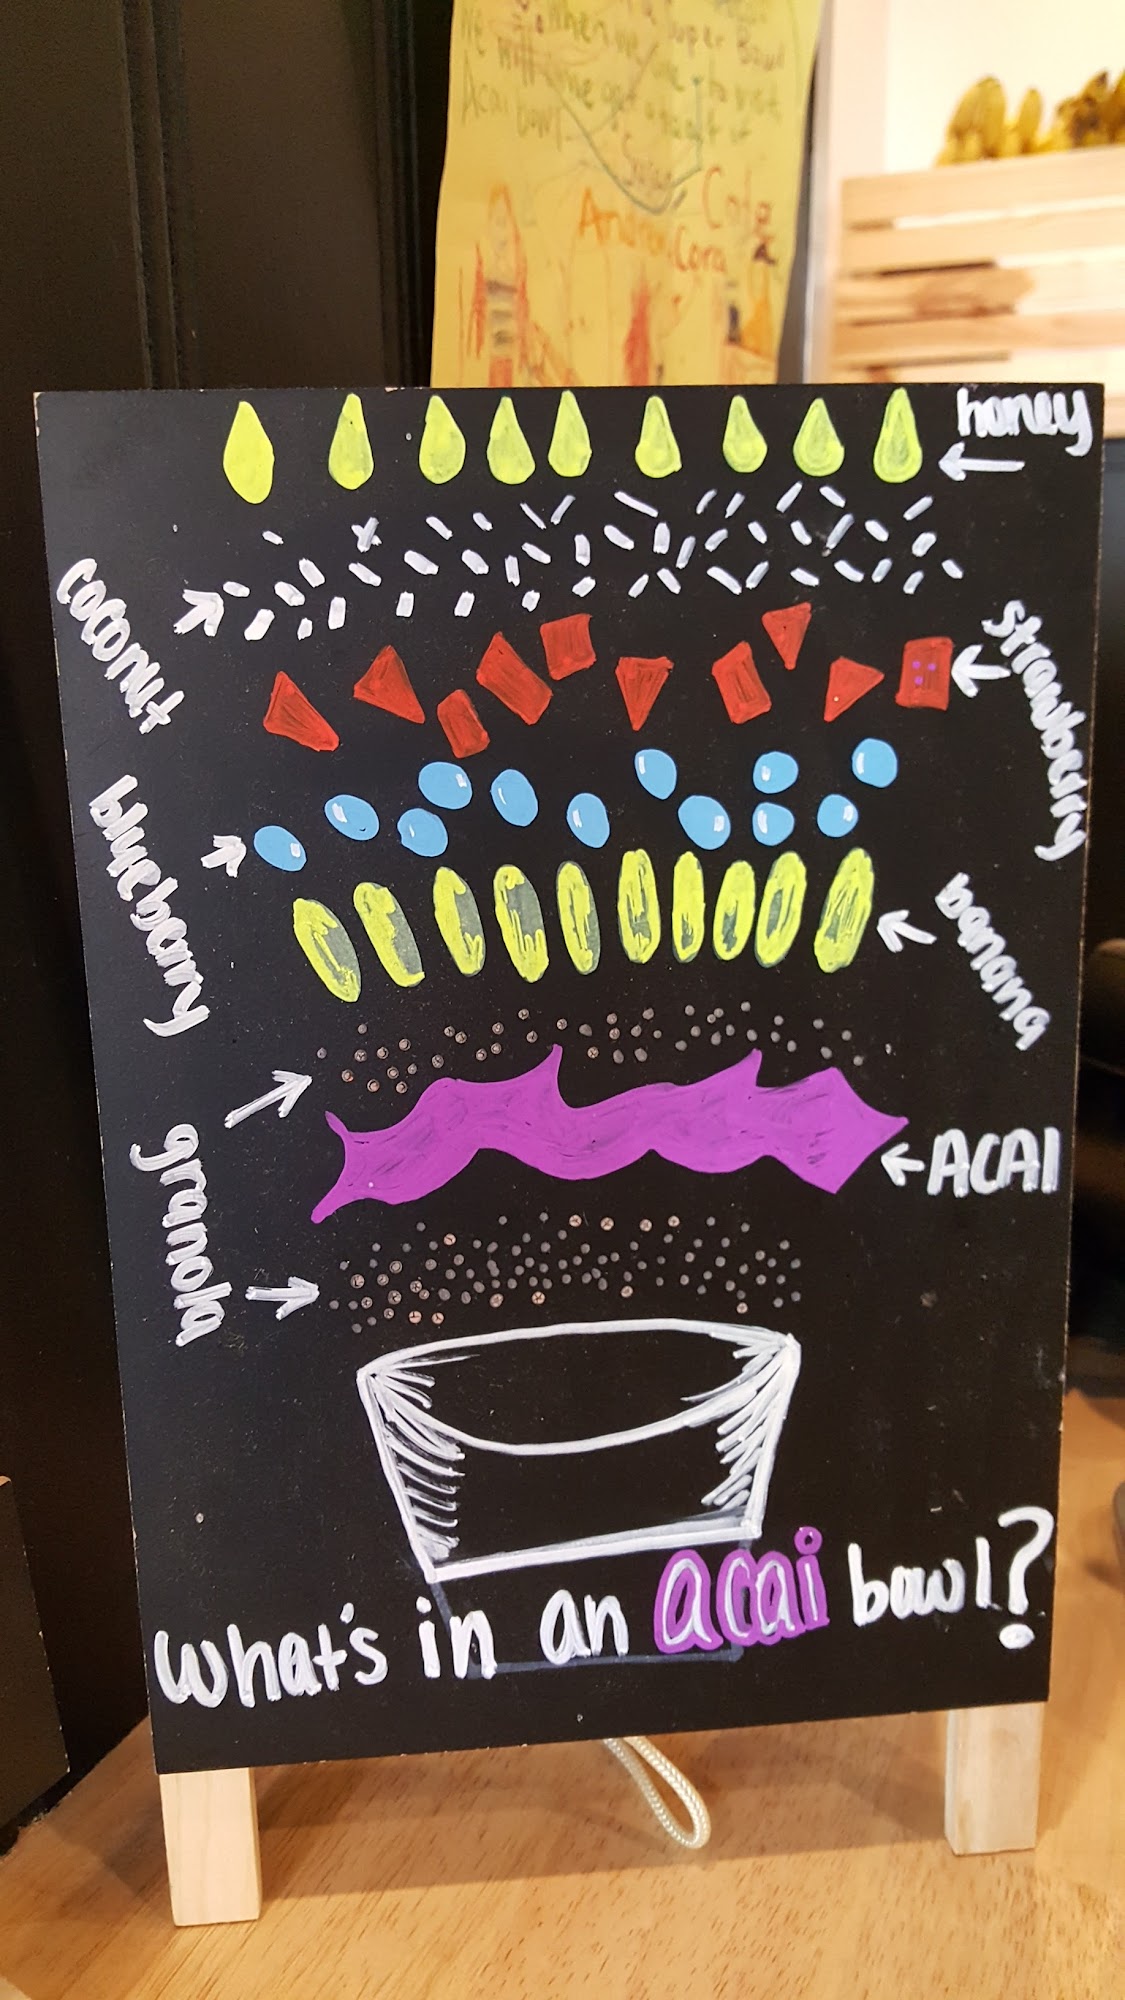 Super Bowl
We will
Acai bowl
Andrew Cora
honey
coconut
strawberry
blueberry
banana
granola
ACAI
What's in an acai bowl?